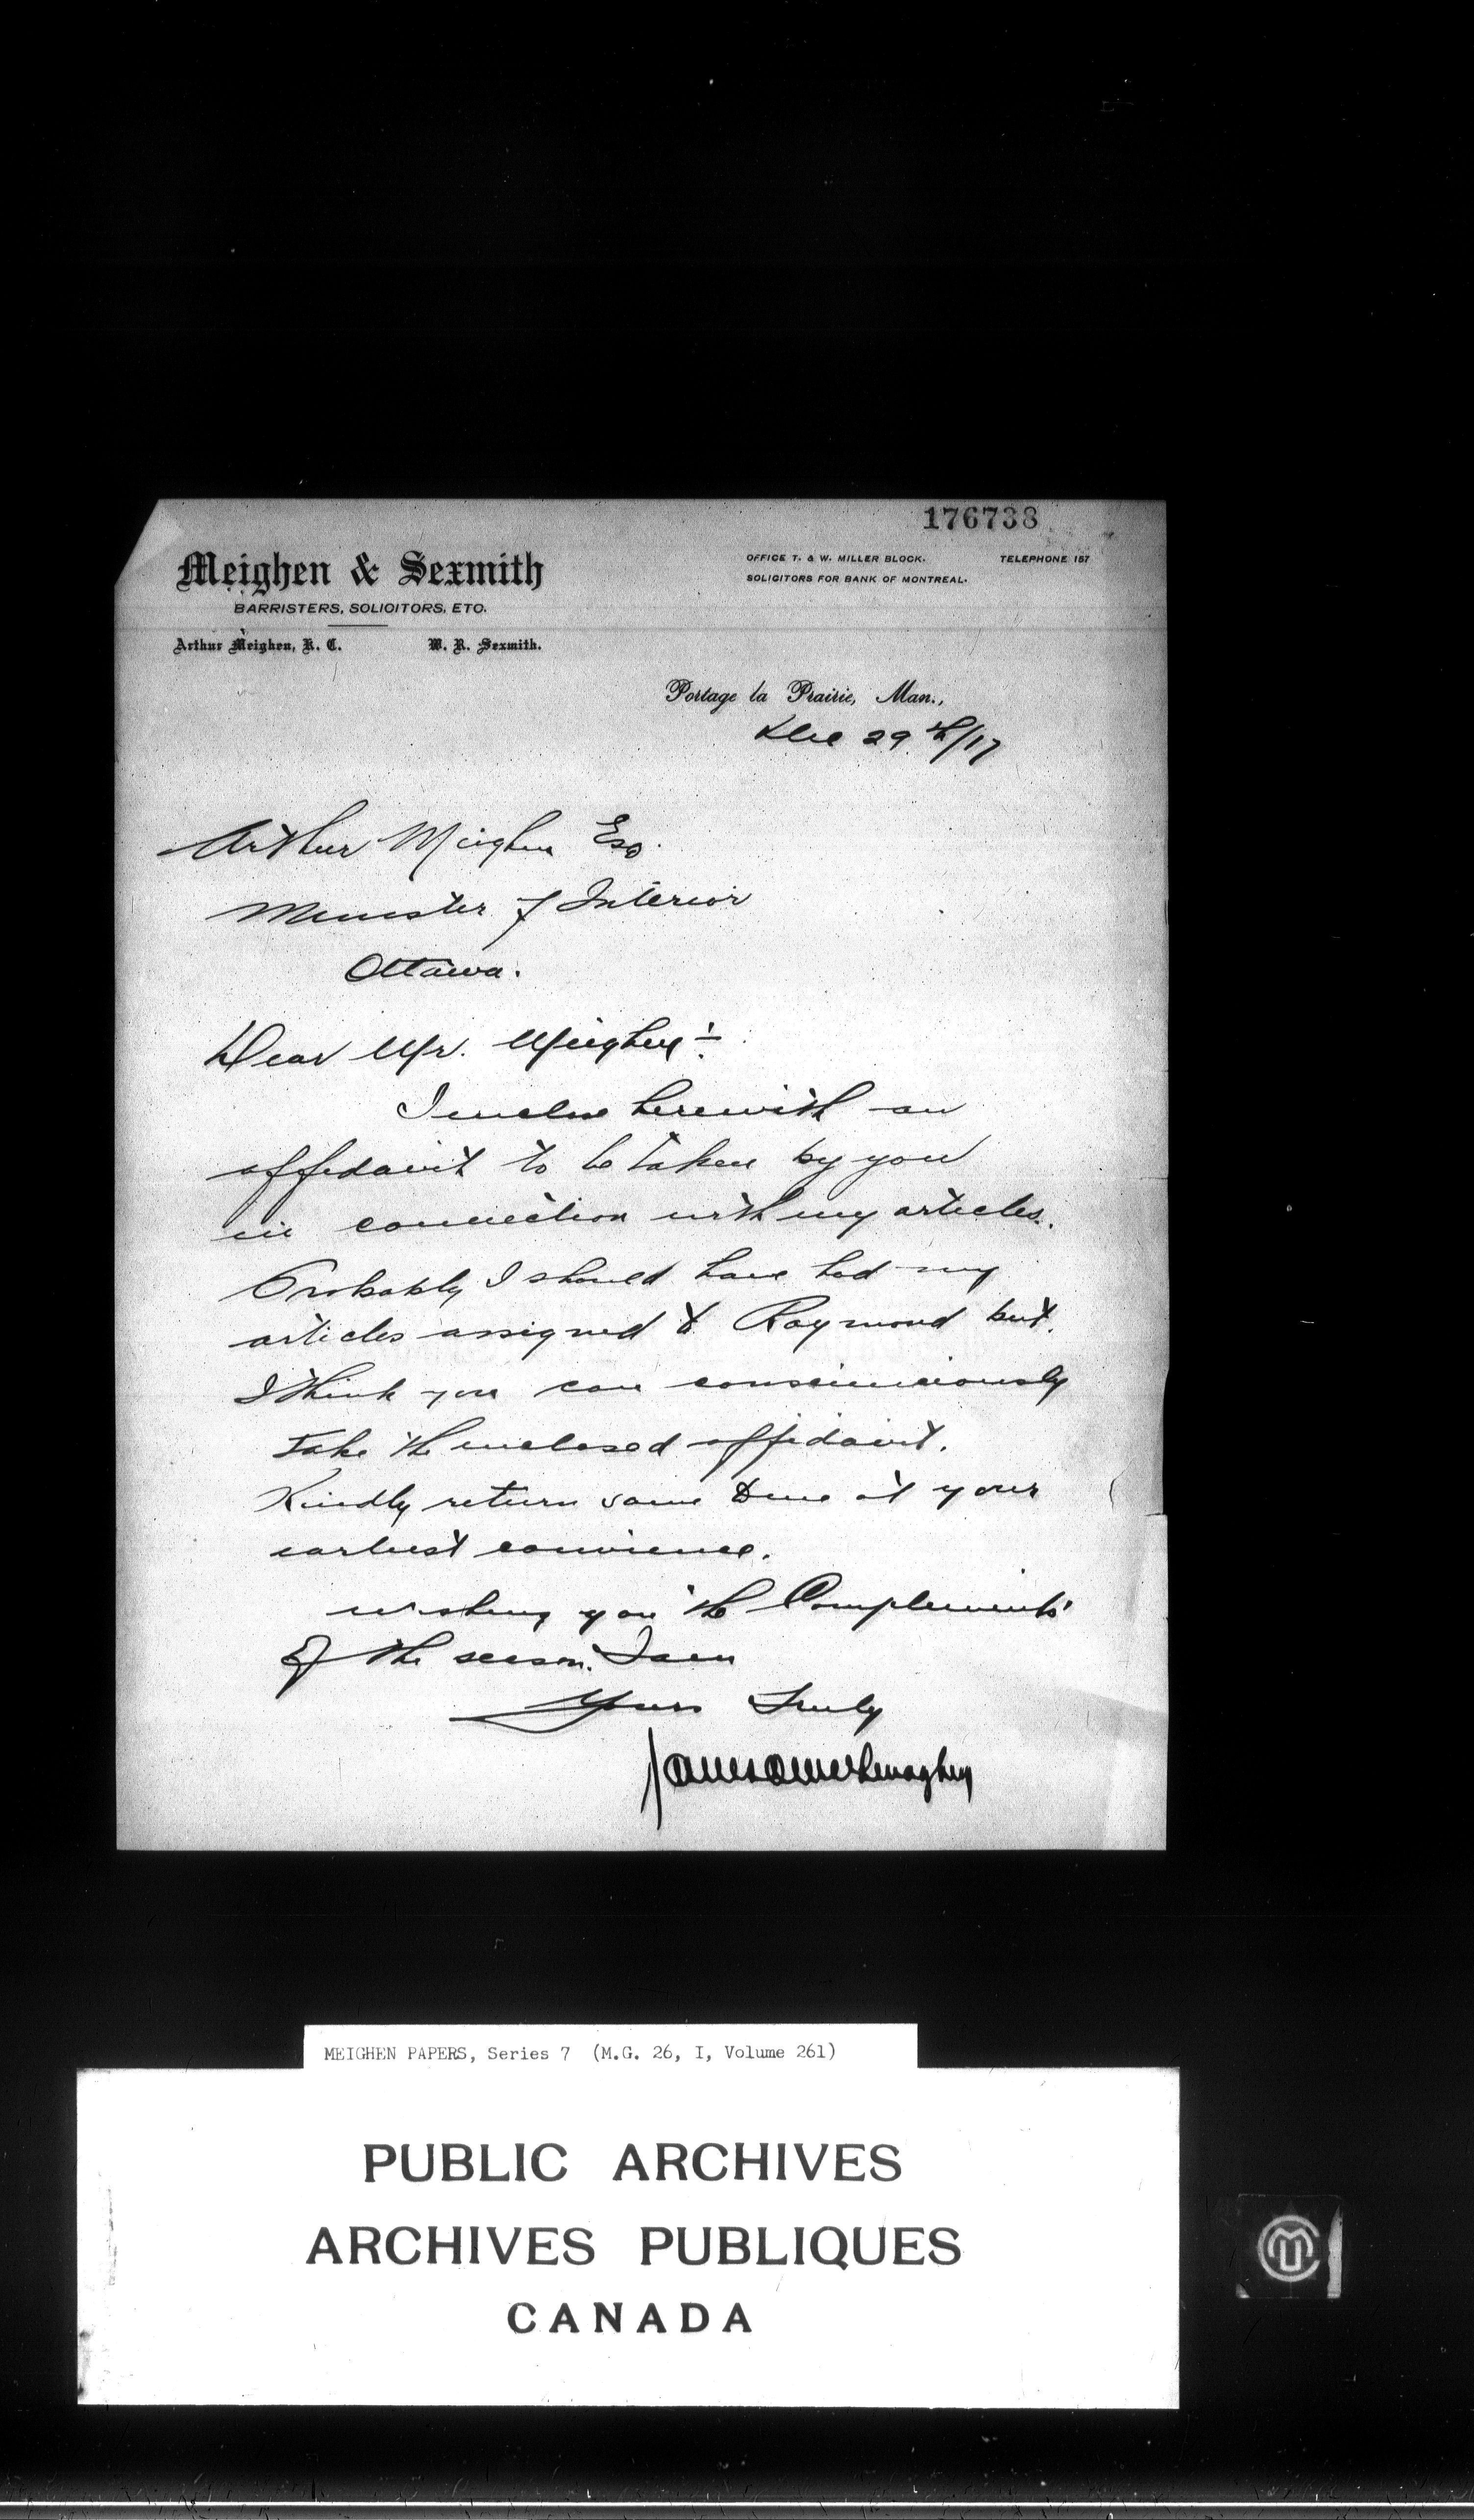 176738
Meighen & Sexmith
BARRISTERS, SOLICITORS, ETC.
Arthur Meighen, K. C. W. R. Sexmith.
OFFICE T. & W. MILLER BLOCK. TELEPHONE 157
SOLICITORS FOR BANK OF MONTREAL.
Portage la Prairie, Man.,
Dec 29th/17
Arthur Meighen Esq.
Minister of Interior
Ottawa.
Dear Mr. Meighen:-
I enclose herewith an
affidavit to be taken by you
in connection with my articles.
Probably I should have had my
articles assigned to Raymond but
I think you can
take the enclosed affidavit.
Kindly return same to me at your
earliest
wishing you the Compliments
Of the season. I am
Yours Truly
James
MEIGHEN PAPERS, Series 7 (M.G. 26, I, Volume 261)
PUBLIC ARCHIVES
ARCHIVES PUBLIQUES
CANADA